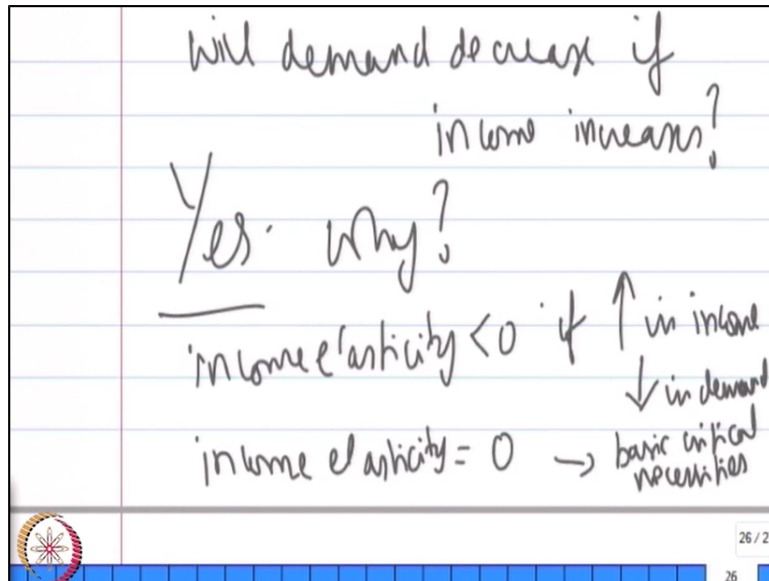 will demand decrease if
income increases?
Yes. Why?
income elasticity < 0 if ↑ in income
↓ in demand
income elasticity = 0 → basic critical
necessities
26 / 2
26